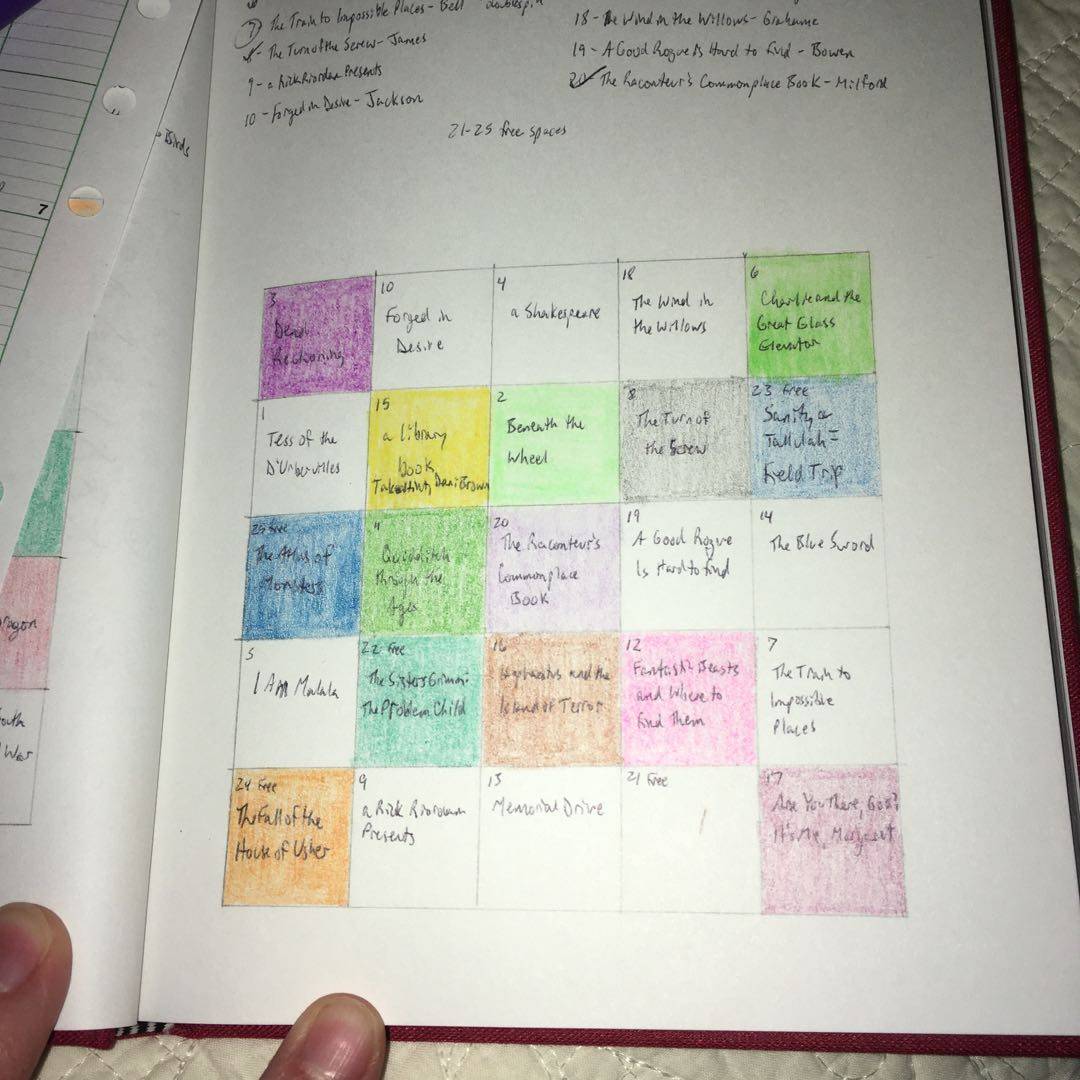 7 The Train to Impossible Places - Bell doublespin
8 - The Turn of the Screw - James
9 - a Rick Riordan Presents
10 - Forged in Desire - Jackson
18 - The Wind in the Willows - Grahame
19 - A Good Rogue Is Hard to Find - Bowen
20 The Raconteur's Commonplace Book - Milford
21-25 free spaces
Birds
7
3
Dead
Reckoning
10
Forged in
Desire
4
a Shakespeare
18
The Wind in
the Willows
6
Charlie and the
Great Glass
Elevator
1
Tess of the
D'Urbervilles
15
a library
book
Dani Brown
2
Beneath the
Wheel
8
The Turn of
the Screw
23 Free
Sanity &
Tallulah:
Field Trip
25 Free
The Atlas of
Monsters
11
Quidditch
through the
Ages
20
The Raconteur's
Commonplace
Book
19
A Good Rogue
Is Hard to Find
14
The Blue Sword
5
I Am Malala
22 Free
The Sisters Grimm:
The Problem Child
16
and the
Island of Terror
12
Fantastic Beasts
and Where to
Find Them
7
The Train to
Impossible
Places
24 Free
The Fall of the
House of Usher
9
a Rick Riordan
Presents
13
Memorial Drive
21 Free
17
Are You There, God?
It's Me, Margaret
ragon
outh
War